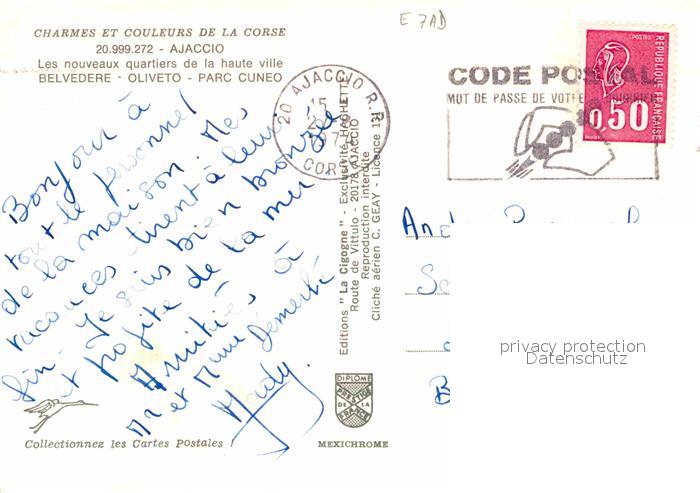 E 7AD
CHARMES ET COULEURS DE LA CORSE
20.999.272 - AJACCIO
Les nouveaux quartiers de la haute ville
BELVEDERE - OLIVETO - PARC CUNEO
Bonjour à
tout le personnel
de la maison. Mes
vacances tirent à leur
fin. Je suis bien bronzée
et profite de la mer
Amitiés à
Mr et Mme Démerlé
Judy.
Collectionnez les Cartes Postales !
Editions "La Cigogne" - Exclusivité HACHETTE
Route de Vittulo - 20178 AJACCIO
Reproduction interdite
Cliché aérien C. GEAY - Licence
DIPLOME
PRESTIGE
DE LA
FRANCE
MEXICHROME
20 AJACCIO R.P.
15
CORSE
CODE POSTAL
MOT DE PASSE DE VOTRE COURRIER
POSTES
REPUBLIQUE FRANÇAISE
0,50
privacy protection
Datenschutz